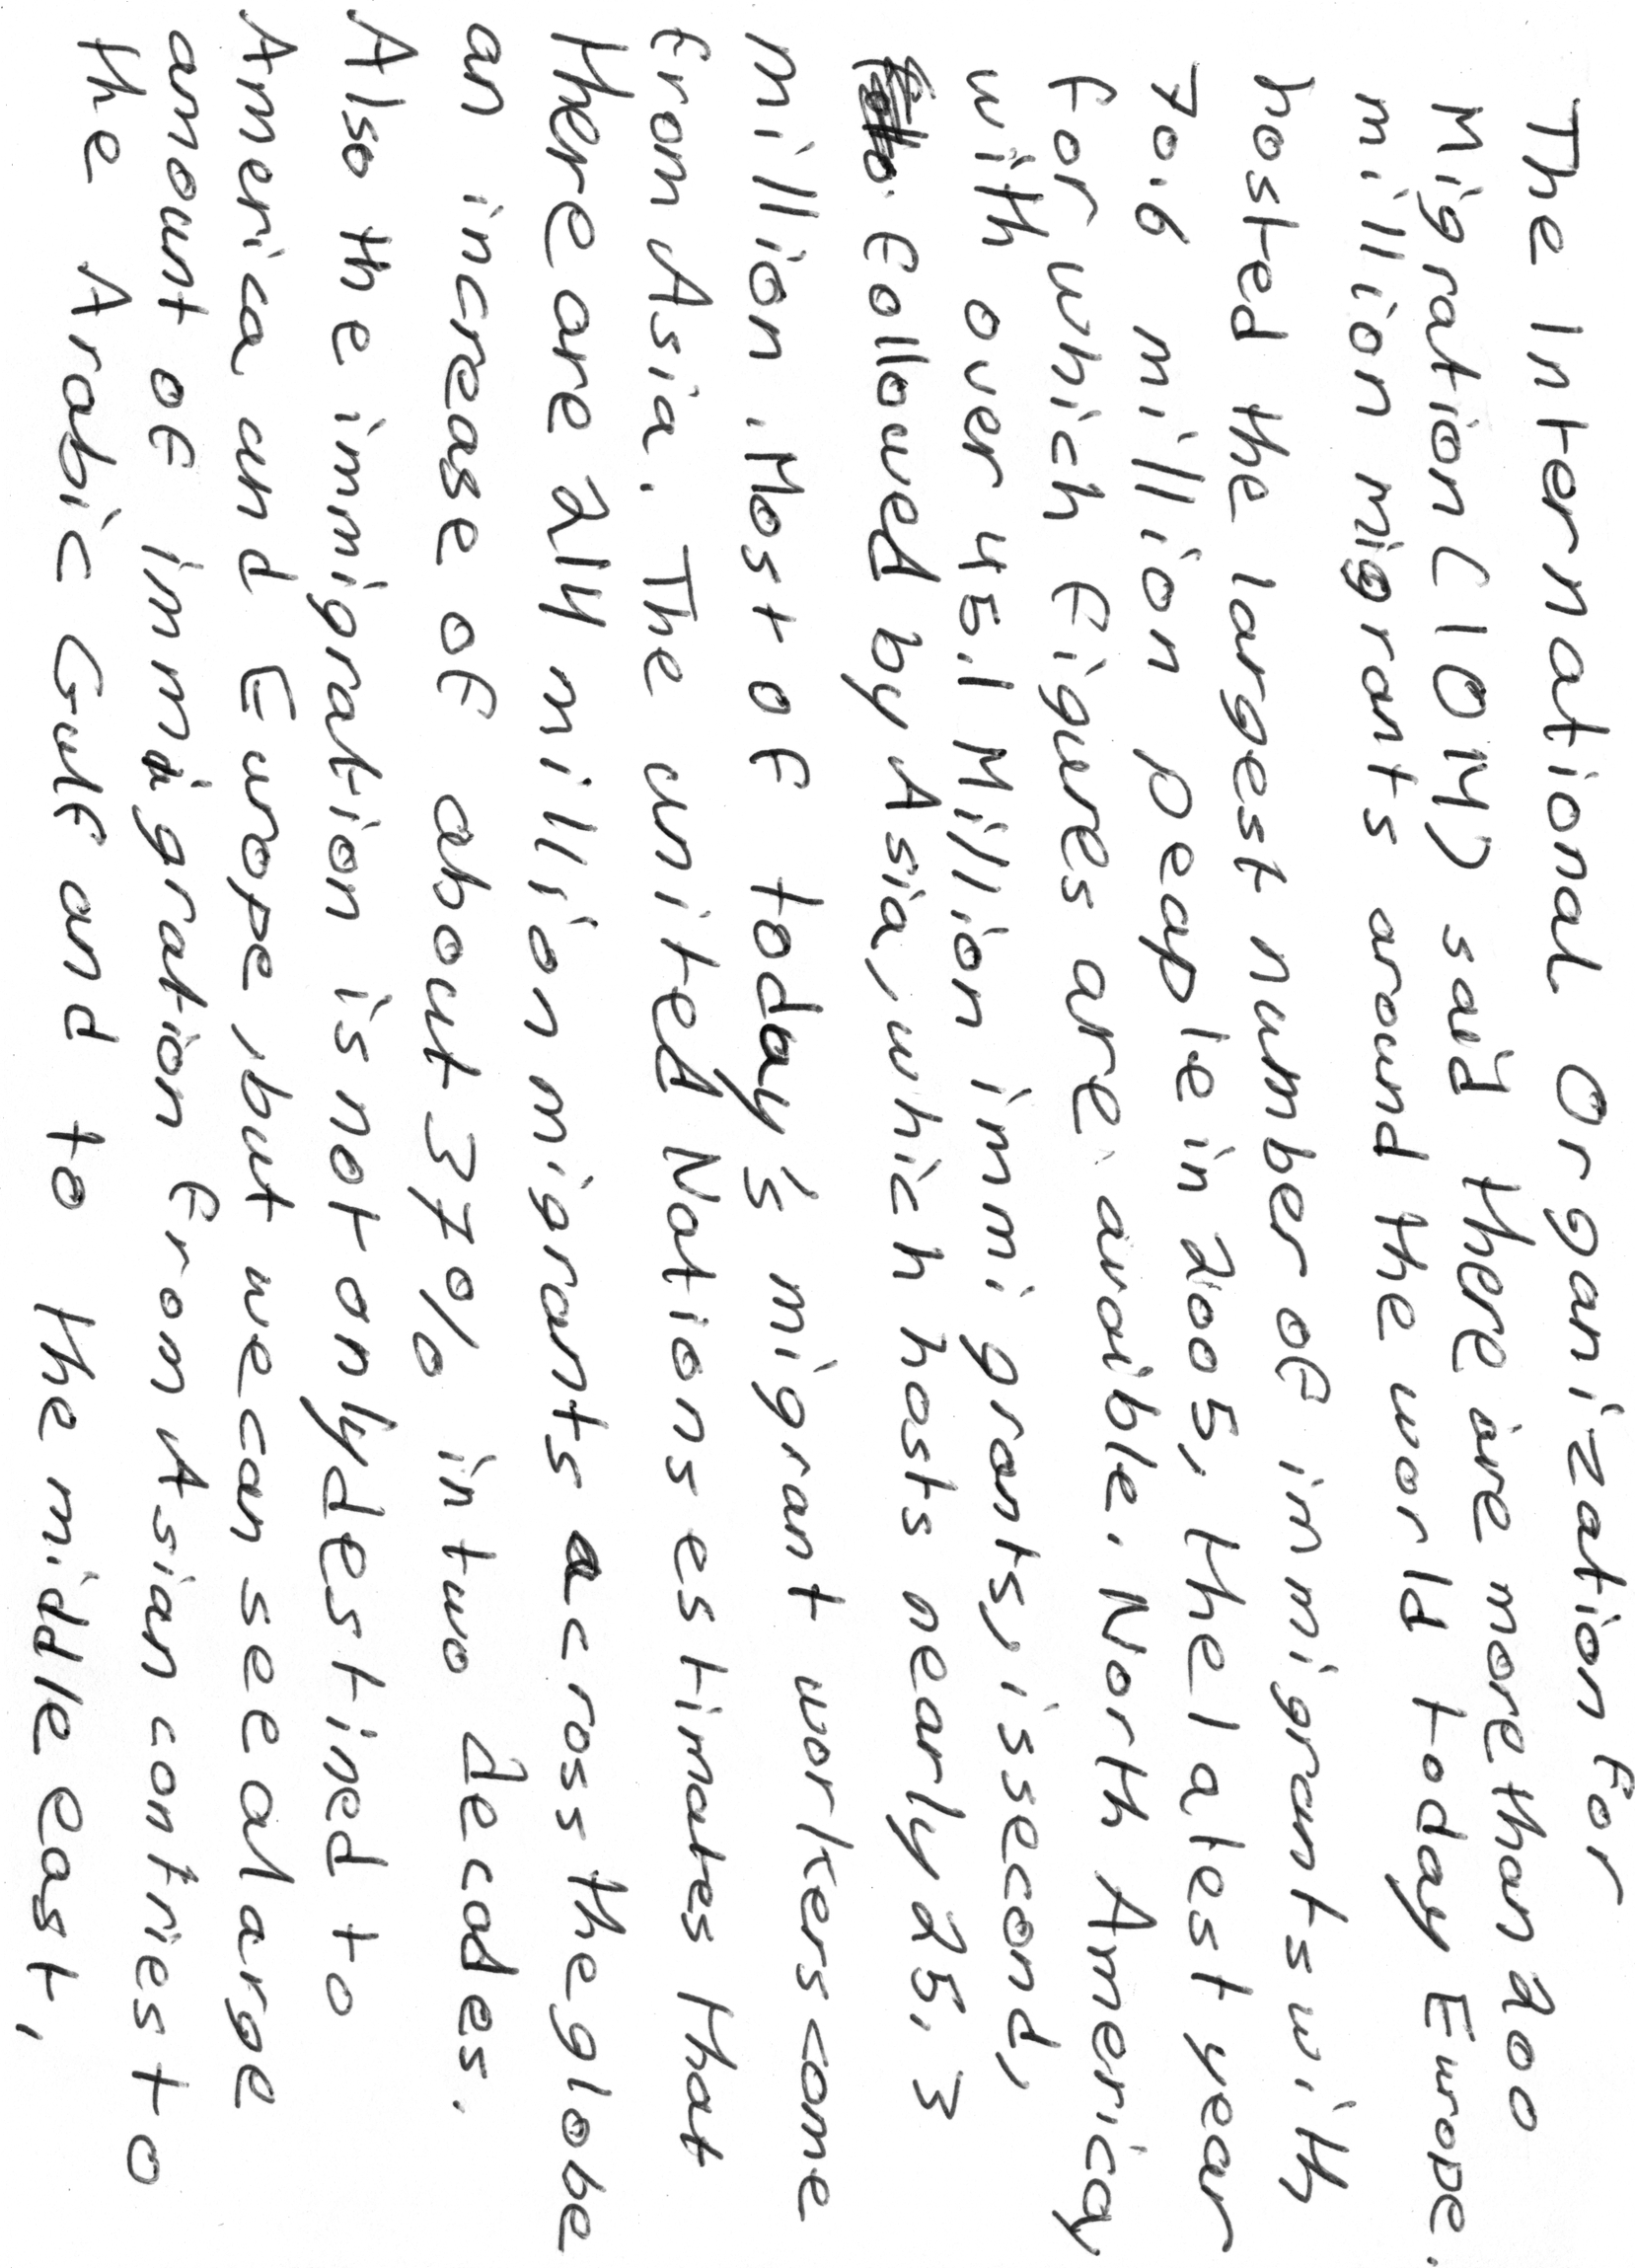 The International Organization for
Migration (IOM) said there are more than 200
million migrants around the world today Europe.
hosted the largest number of immigrants with
70.6 million peaple in 2005, the latest year
for which figures are avaible. North America,
with over 45.1 Million immigrants, is second,
followed by Asia, which hosts nearly 25.3
million. Most of today's migrant workers come
from Asia. The united Nations estimates that
there are 214 million migrants across the globe
an increase of about 37% in two decades.
Also the immigration is not only destined to
America and Europe, but we can see a large
amount of immigration from Asian contries to
the Arabic Gulf and to the middle east,